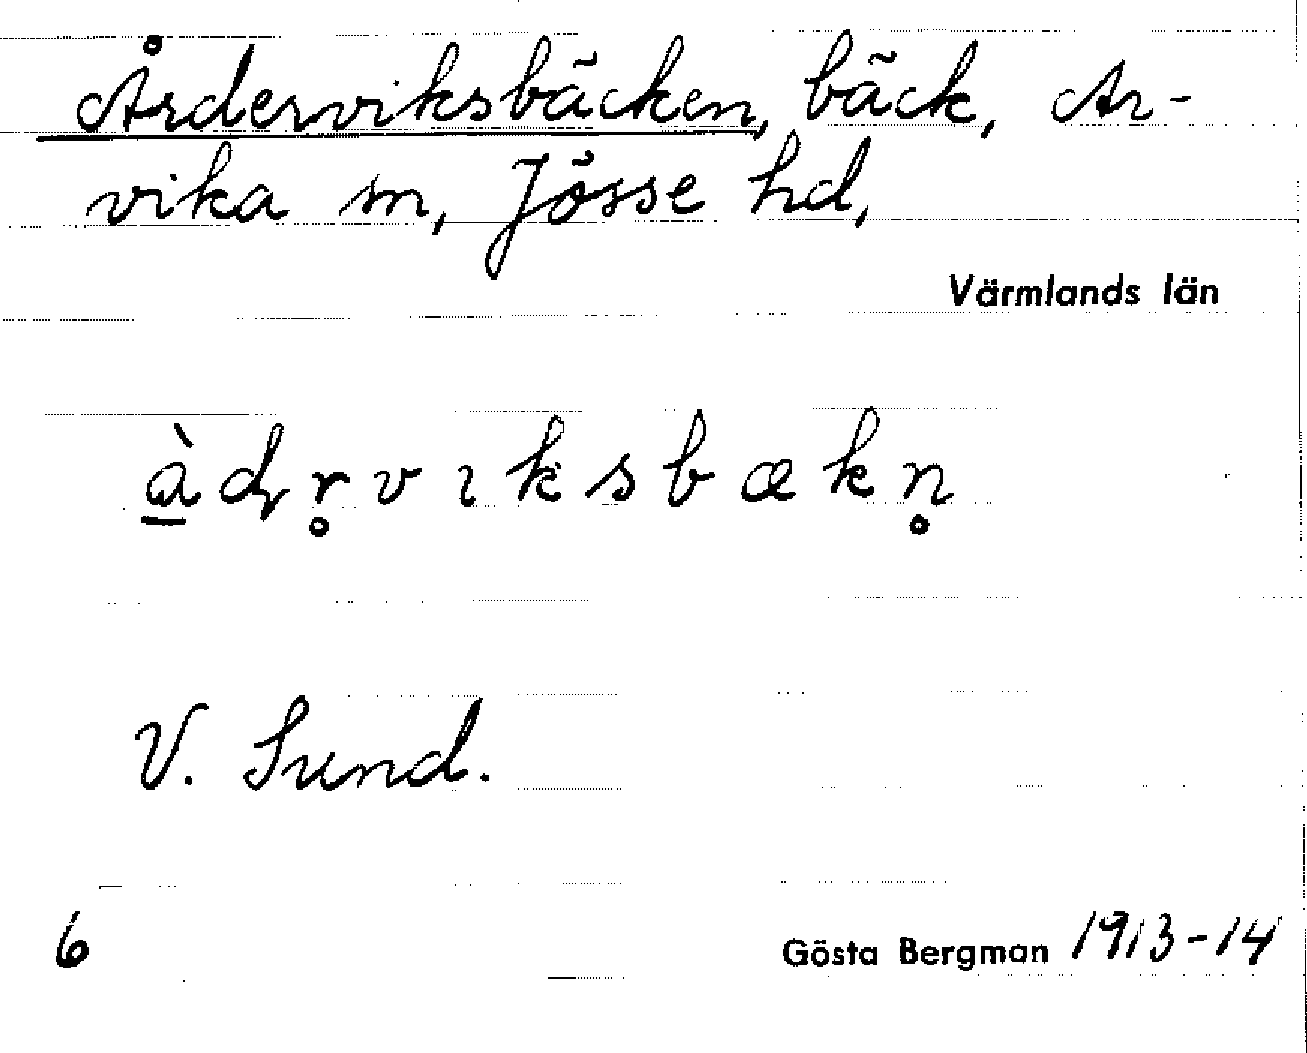 Årderviksbäcken, bäck, Ar-
vika sn, Jösse hd,
Värmlands län
à̲ɖr̥vıksbækn̥
V. Sund.
6 Gösta Bergman 1913-14